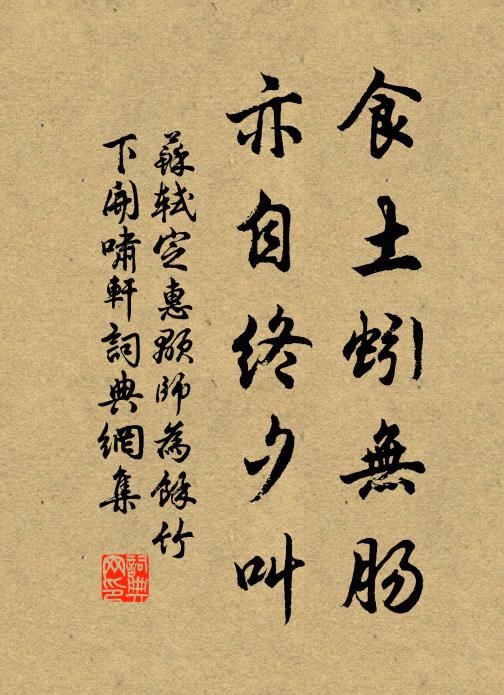 食土蚓無肠
亦自終夕叫
蘇軾定惠顒師為餘竹
下開嘯軒詞典網集
詞典
网印